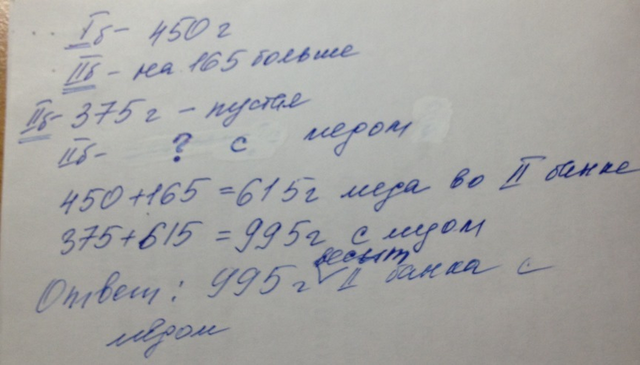 Iб - 450 г
IIб - на 165 больше
IIб - 375 г - пустая
IIб - ? с медом
450+165 = 615г меда во II банке
375+615 = 995г с медом
весит
Ответ: 995 г II банка с
мёдом